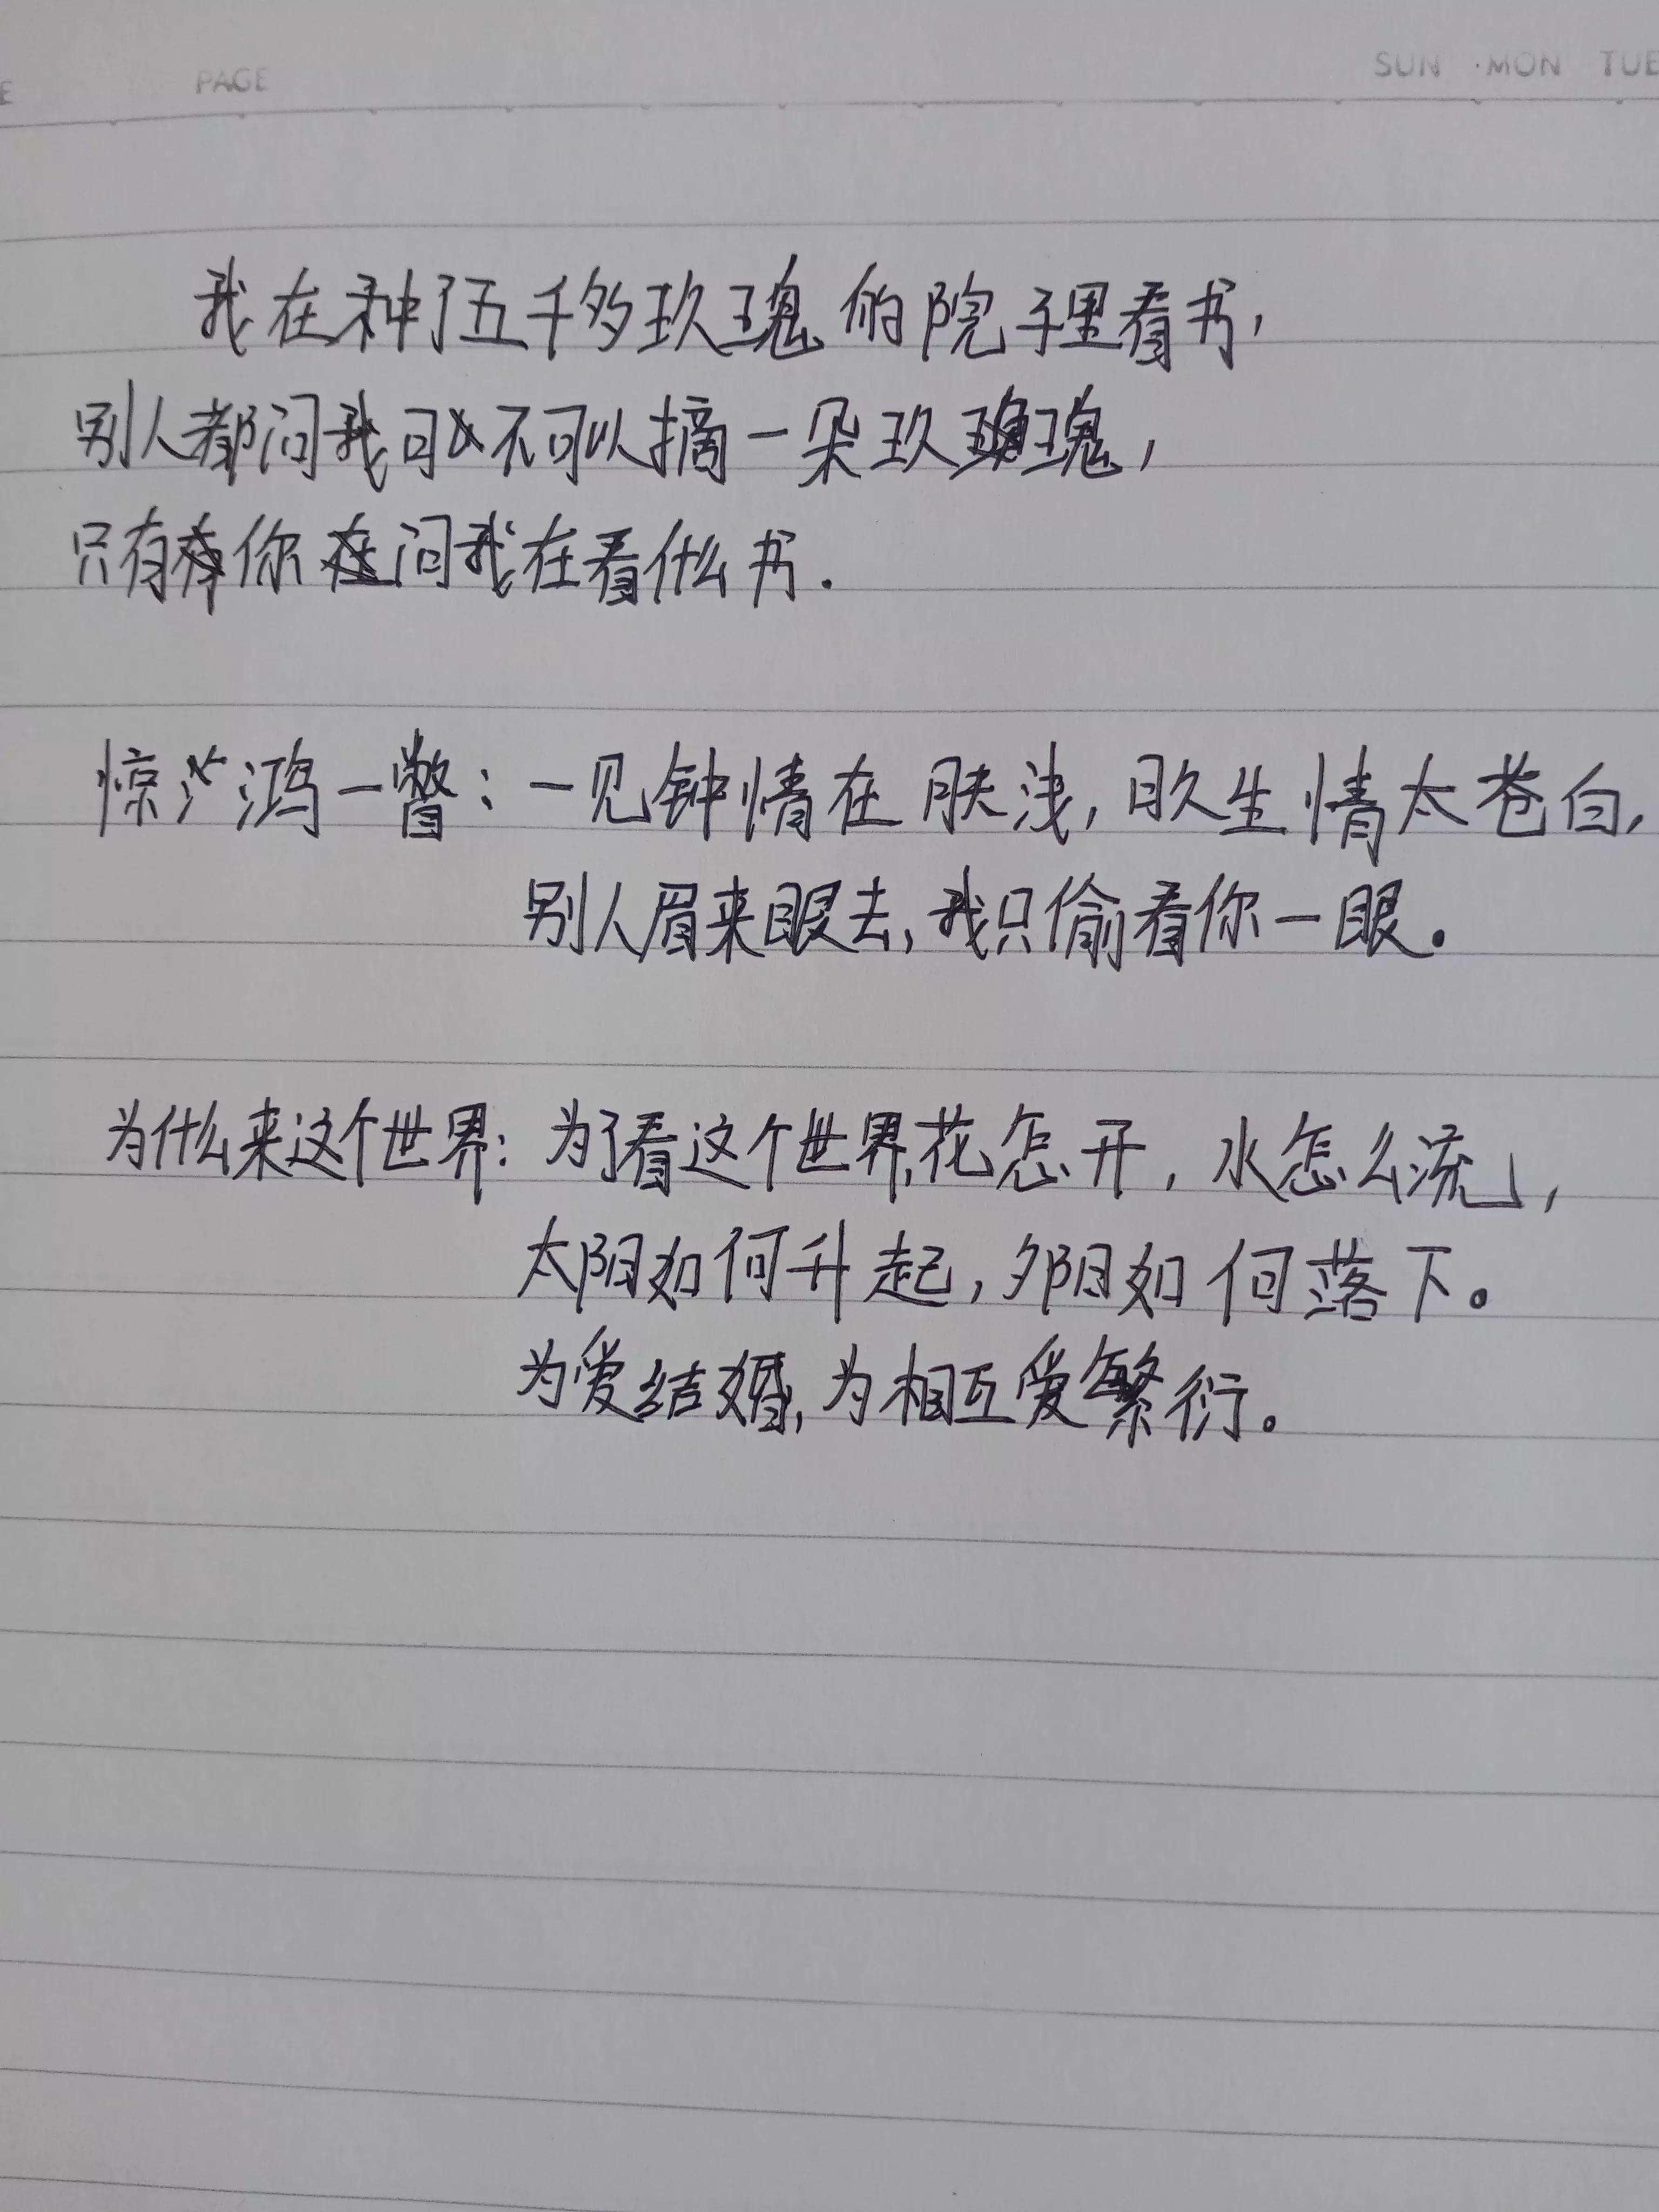 E PAGE SUN MON TUE
我在种了五千多玫瑰的院子里看书,
别人都问我可不可以摘一朵玫瑰,
只有你问我在看什么书.
惊鸿一瞥:一见钟情在肤浅,日久生情太苍白,
别人眉来眼去,我只偷看你一眼。
为什么来这个世界:为了看这个世界,花怎开,水怎么流,
太阳如何升起,夕阳如何落下。
为爱结婚,为相互爱繁衍。